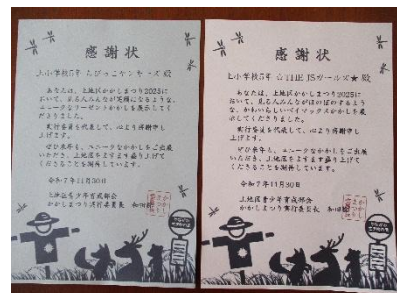 感謝状
上小学校5年 たびっこヤンキーズ 殿
あなたは、上地区かかしまつり2025に
おいて、見る人みんなが笑顔になるような、
ユニークなリーゼントかかしを展示してく
ださりました。
実行委員を代表して、心より感謝申し
上げます。
ぜひ来年も、ユニークなかかしをご出展
いただき、上地区をますます盛り上げて
くださることを期待しています。
令和7年11月30日
上地区青少年育成部会
かかしまつり実行委員長
感謝状
上小学校5年 ☆THE JSガールズ★ 殿
あなたは、上地区かかしまつり2025に
おいて、見る人みんながほのぼのするよう
な、かわいらしいベイマックスかかしを展
示してくださりました。
実行委員を代表して、心より感謝申し
上げます。
ぜひ来年も、ユニークなかかしをご出展
いただき、上地区をますます盛り上げて
くださることを期待しています。
令和7年11月30日
上地区青少年育成部会
かかしまつり実行委員長